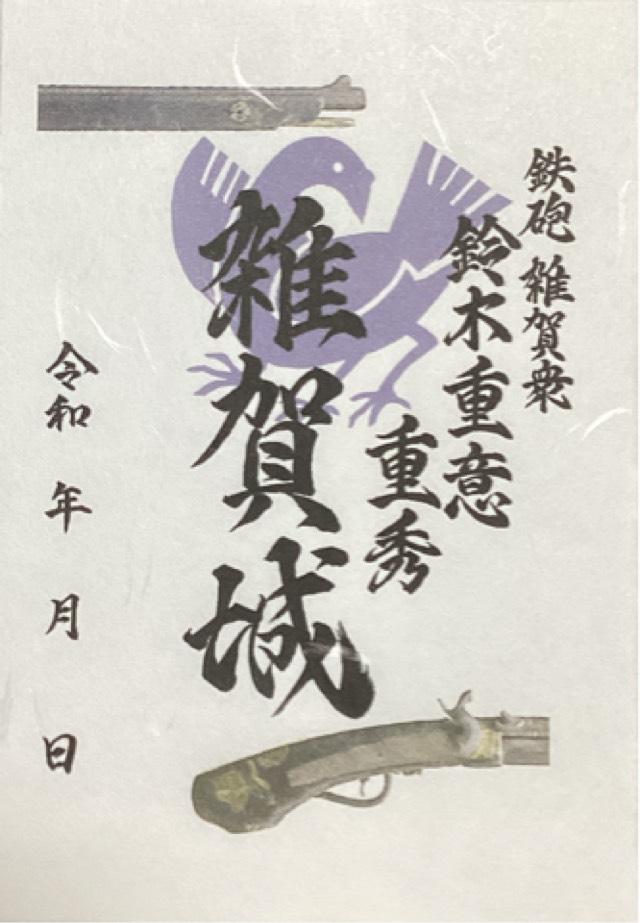 鉄砲 雑賀衆
鈴木重意
重秀
雑賀城
令和 年 月 日